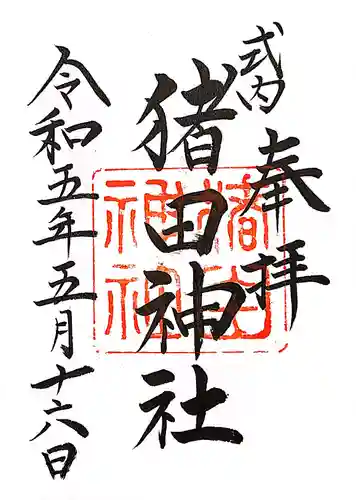 式内
奉拝
猪田神社
猪田
神社
令和五年五月十六日